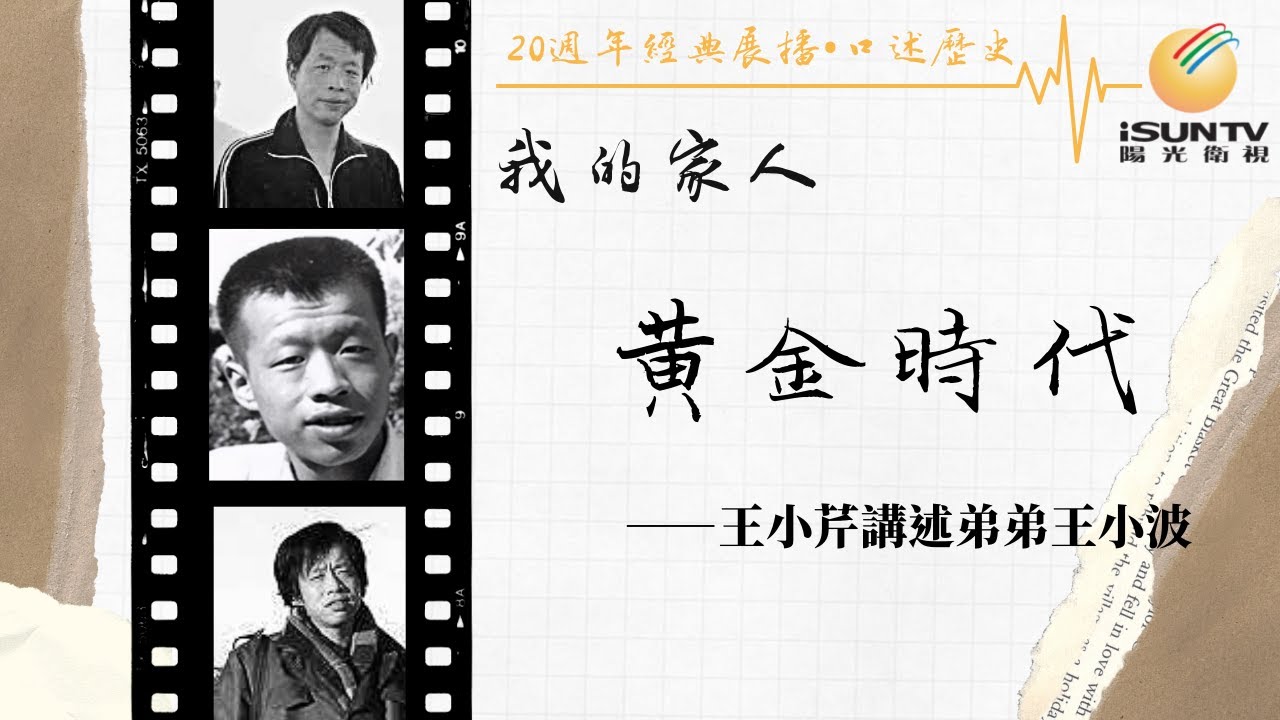 20週年經典展播•口述歷史
iSUNTV
陽光衛視
我的家人
黃金時代
——王小芹講述弟弟王小波
TX 5063
10
9A
9
8A
the Great
and fell in love with
the village
a holida